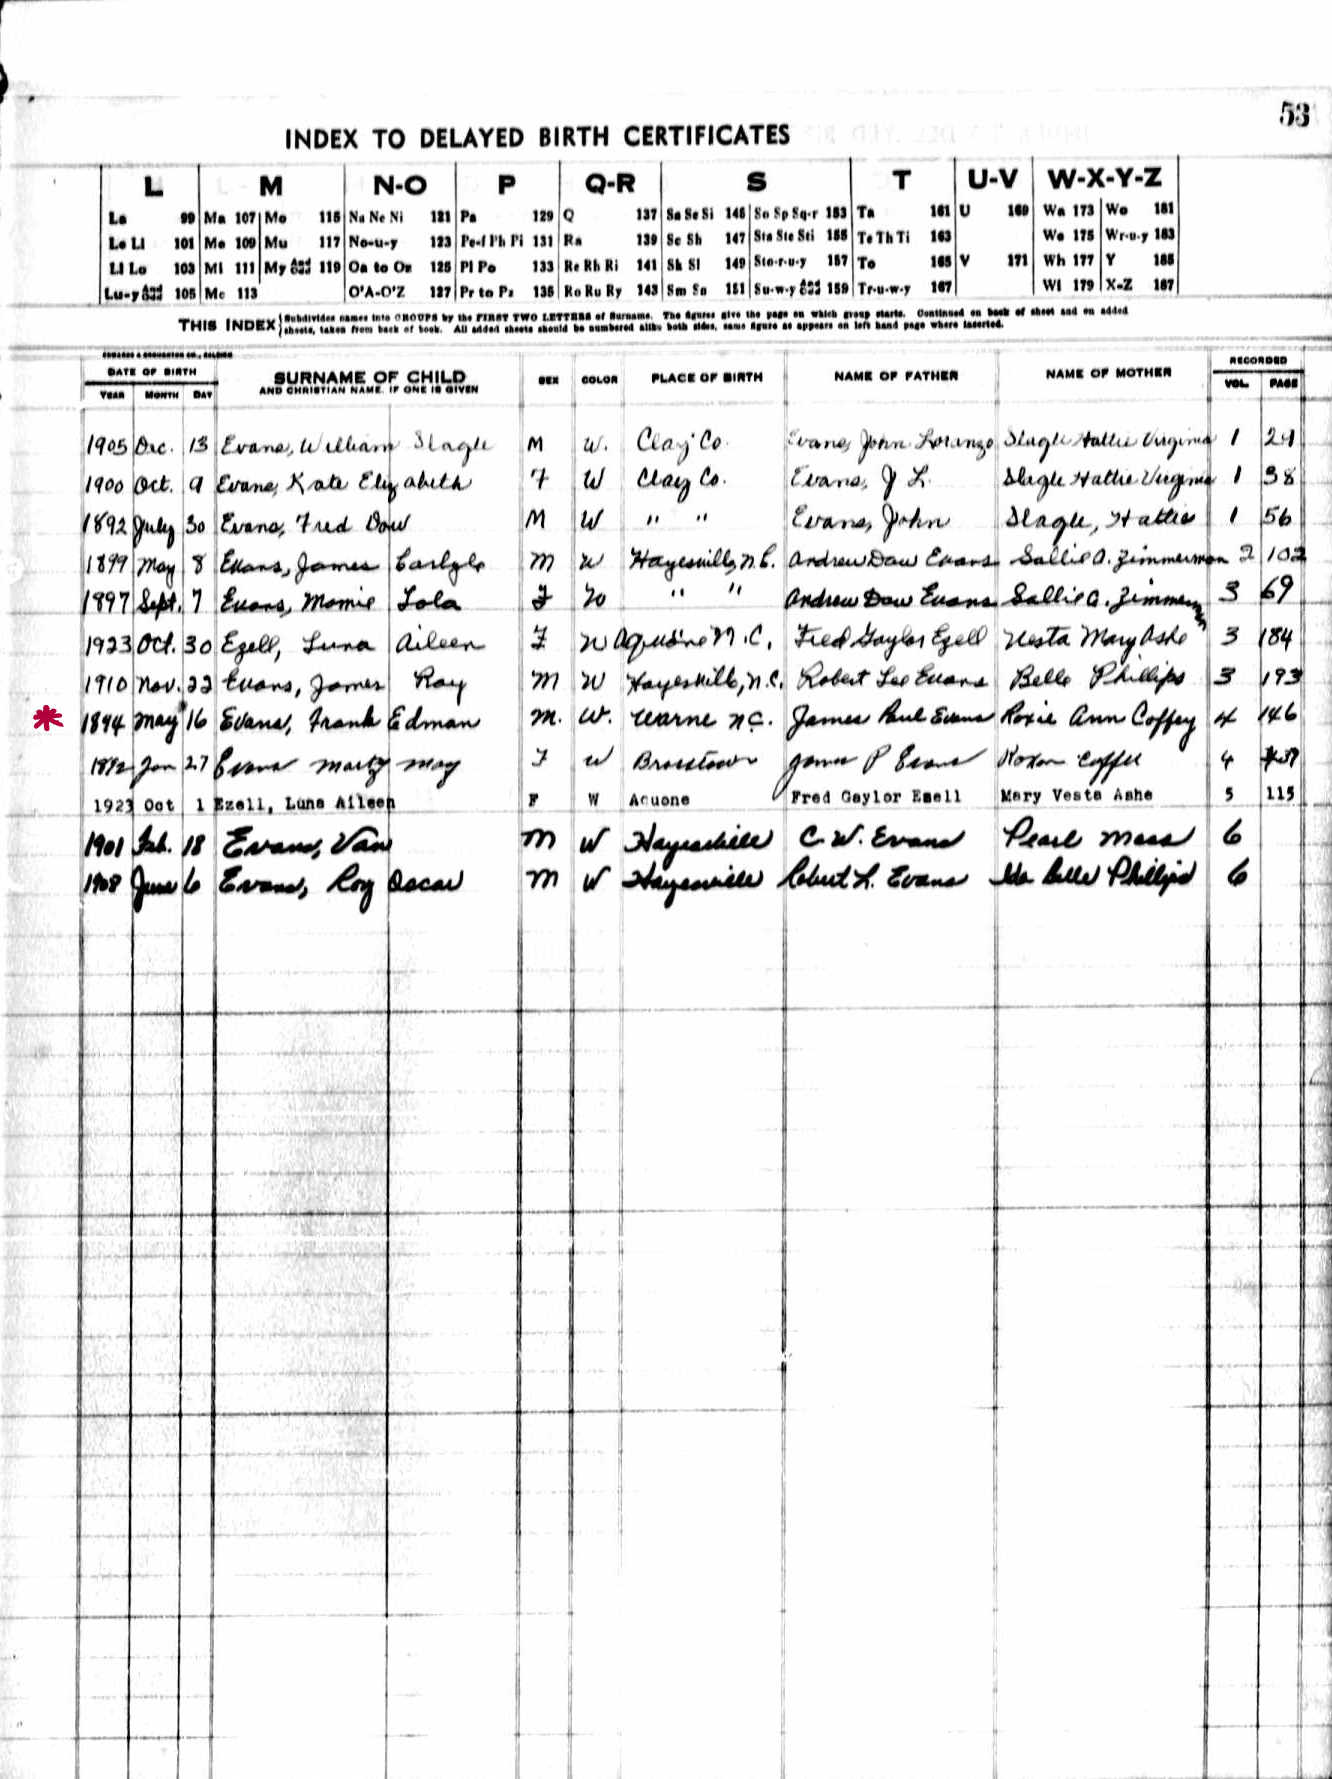 53
INDEX TO DELAYED BIRTH CERTIFICATES
L M N-O P Q-R S T U-V W-X-Y-Z
La 99 Ma 107 Mo 115 Na Ne Ni 121 Pa 129 Q 137 Sa Se Si 145 So Sp Sq-r 153 Ta 161 U 169 Wa 173 Wo 181
Le Li 101 Me 109 Mu 117 No-u-y 123 Pe-f Ph Pi 131 Ra 139 Sc Sh 147 Sta Ste Sti 155 Te Th Ti 163 We 175 Wr-u-y 183
Ll Lo 103 Mi 111 My 119 Oa to Oz 125 Pl Po 133 Re Rh Ri 141 Sk Sl 149 Sto-r-u-y 157 To 165 V 171 Wh 177 Y 185
Lu-y 105 Mc 113 O'A-O'Z 127 Pr to Pz 135 Ro Ru Ry 143 Sm Sn 151 Su-w-y 159 Tr-u-w-y 167 Wi 179 X-Z 187
THIS INDEX { Subdivides names into GROUPS by the FIRST TWO LETTERS of Surname. The figures give the page on which group starts. Continued on back of sheet and on added
sheets, taken from back of book. All added sheets should be numbered alike both sides, same figure as appears on left hand page where inserted.
DATE OF BIRTH SURNAME OF CHILD SEX COLOR PLACE OF BIRTH NAME OF FATHER NAME OF MOTHER RECORDED
YEAR MONTH DAY AND CHRISTIAN NAME, IF ONE IS GIVEN VOL. PAGE
1905 Dec. 13 Evans, William Slagle M W. Clay Co. Evans, John Lorenzo Slagle Hattie Virginia 1 24
1900 Oct. 9 Evans, Kate Elizabeth F W Clay Co. Evans, J L. Slagle Hattie Virginia 1 38
1892 July 30 Evans, Fred Dow M W " " Evans, John Slagle, Hattie 1 56
1899 May 8 Evans, James Carlyle M W Hayesville, N.C. Andrew Dow Evans Sallie A. Zimmerman 2 102
1897 Sept. 7 Evans, Mamie Lola F W " " Andrew Dow Evans Sallie A. Zimmerman 3 69
1923 Oct. 30 Ezell, Luna Aileen F W Aquone N.C. Fred Gaylor Ezell Vesta Mary Ashe 3 184
1910 Nov. 22 Evans, James Roy M W Hayesville, N.C. Robert Lee Evans Belle Phillips 3 193
* 1894 May 16 Evans, Frank Edman M. W. Warne N.C. James Paul Evans Roxie Ann Coffey 4 146
Jan 27 Evans May F W Brasstown James P Evans Roxan Coffee 4
1923 Oct 1 Ezell, Luna Aileen F W Aquone Fred Gaylor Ezell Mary Vesta Ashe 5 115
1901 Feb. 18 Evans, Van M W Hayesville C. W. Evans Pearl Moss 6
1908 June 6 Evans, Roy Oscar M W Hayesville Robert L. Evans Ida Belle Phillips 6